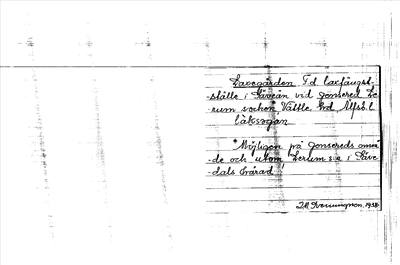 Laxegården F.d laxfångst-
ställe i Säveån vid Jonsered Le-
rum socken Vättle hd, Älfsb. l
låksagan
"Möjligen på Jonsereds områ
de och utom Lerum s:n i Säve
dals härad
1938